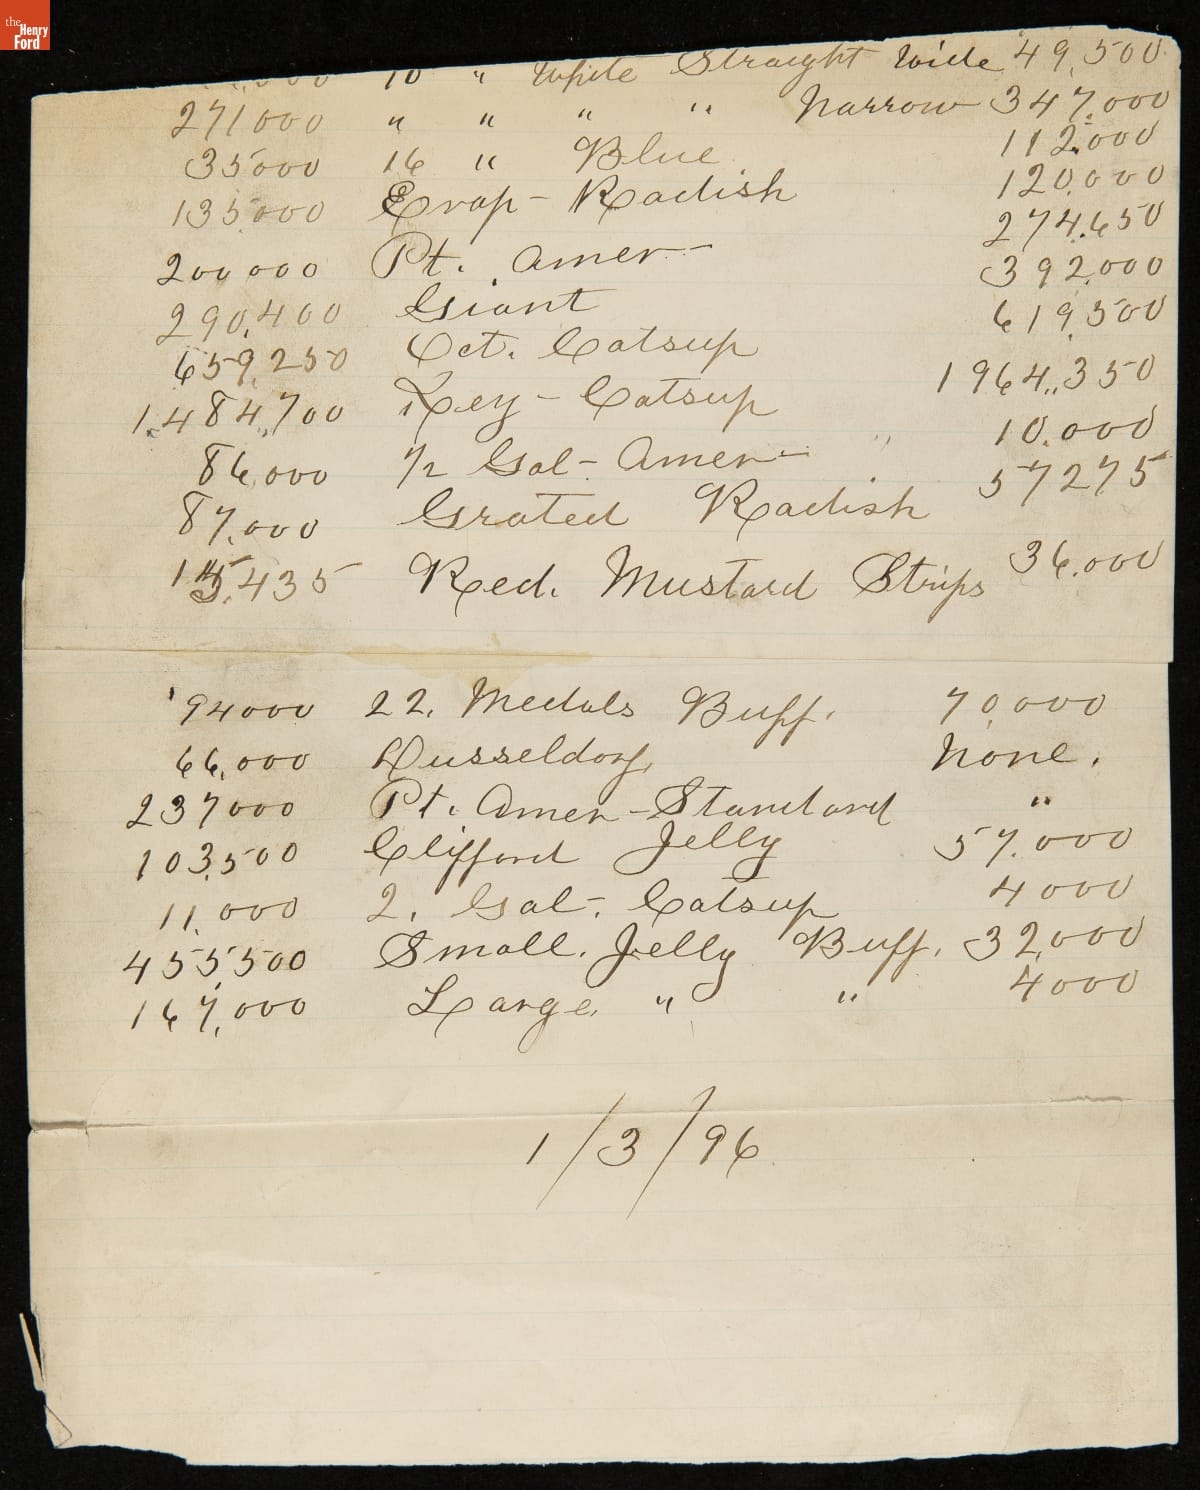 the
Henry
Ford
000 10 " White Straight Wide 49,500
271000 " " " " Narrow 347,000
35000 16 " Blue 112.000
135,000 Evap- Radish 120,000
200,000 Pt. Amer- 274.650
290,400 Giant 392,000
659,250 Oct. Catsup 619,500
1,484,700 Key- Catsup 1964,350
86,000 1/2 Gal- Amer- 10.000
87,000 Grated Radish 57275
15,435 Red. Mustard Strips 36.000
94000 22. Medals Buff. 70,000
66,000 Dusseldorf None.
237000 Pt. Amer-Standard "
103,500 Clifford Jelly 57.000
11,000 2. Gal-. Catsup 4000
455,500 Small. Jelly Buff. 32,000
167,000 Large. " " 4000
1/3/96